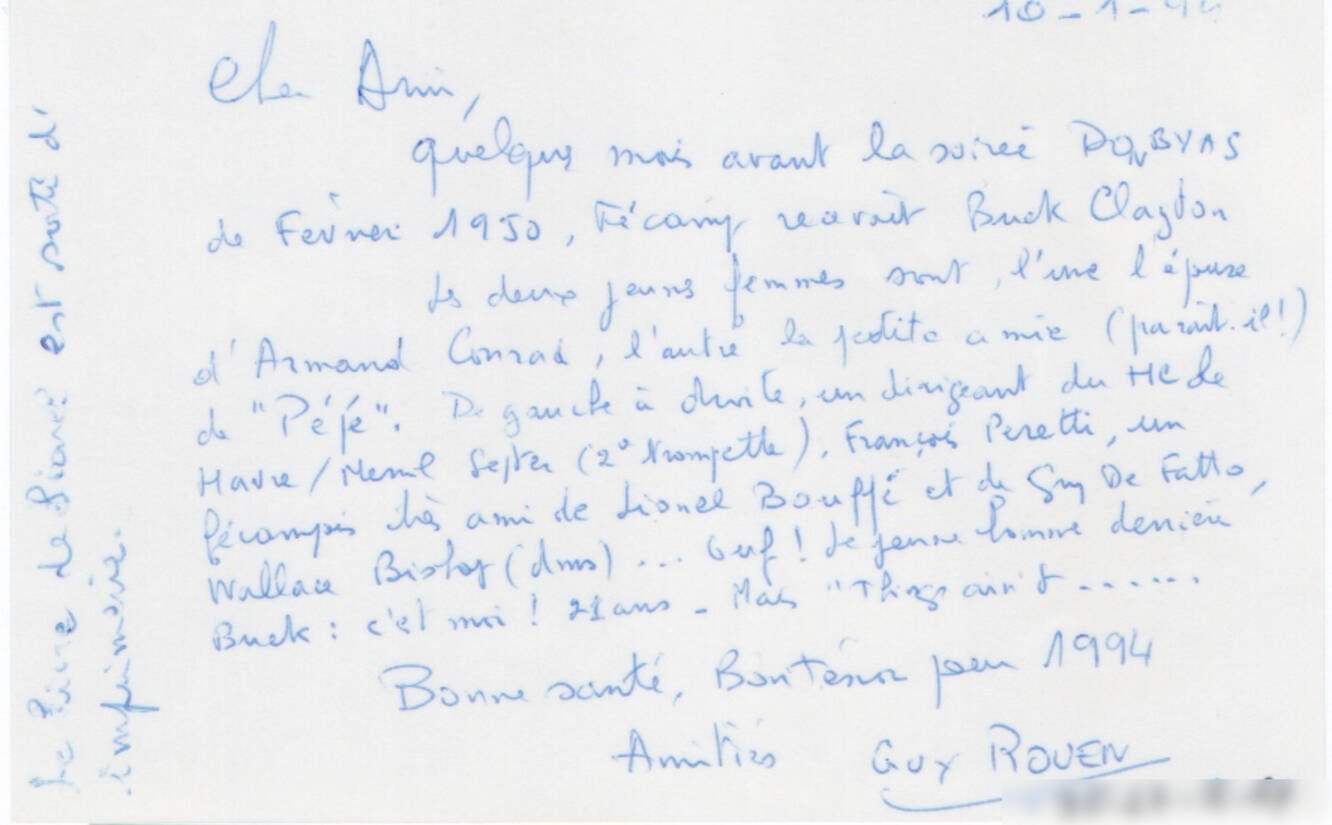 10-1-94
Cher Ami,
Quelques mois avant la soirée DON BYAS
de Février 1950, Fécamp recevait Buck Clayton
Les deux jeunes femmes sont, l'une l'épouse
d'Armand Conrad, l'autre la petite amie (paraît-il!)
de "Péfé". De gauche à droite, un dirigeant du HC de
Havre / Merril Stepter (2° trompette), François Peretti, un
fécampois très ami de Lionel Bouffé et de Guy De Fatto,
Wallace Bishop (dms) ... Ouf ! Le jeune homme derrière
Buck : c'est moi ! 21 ans - Mais "Things ain't .......
Bonne santé, pour 1994
Amitiés GUY ROUEN
Le livre de est sorti d'
imprimerie.